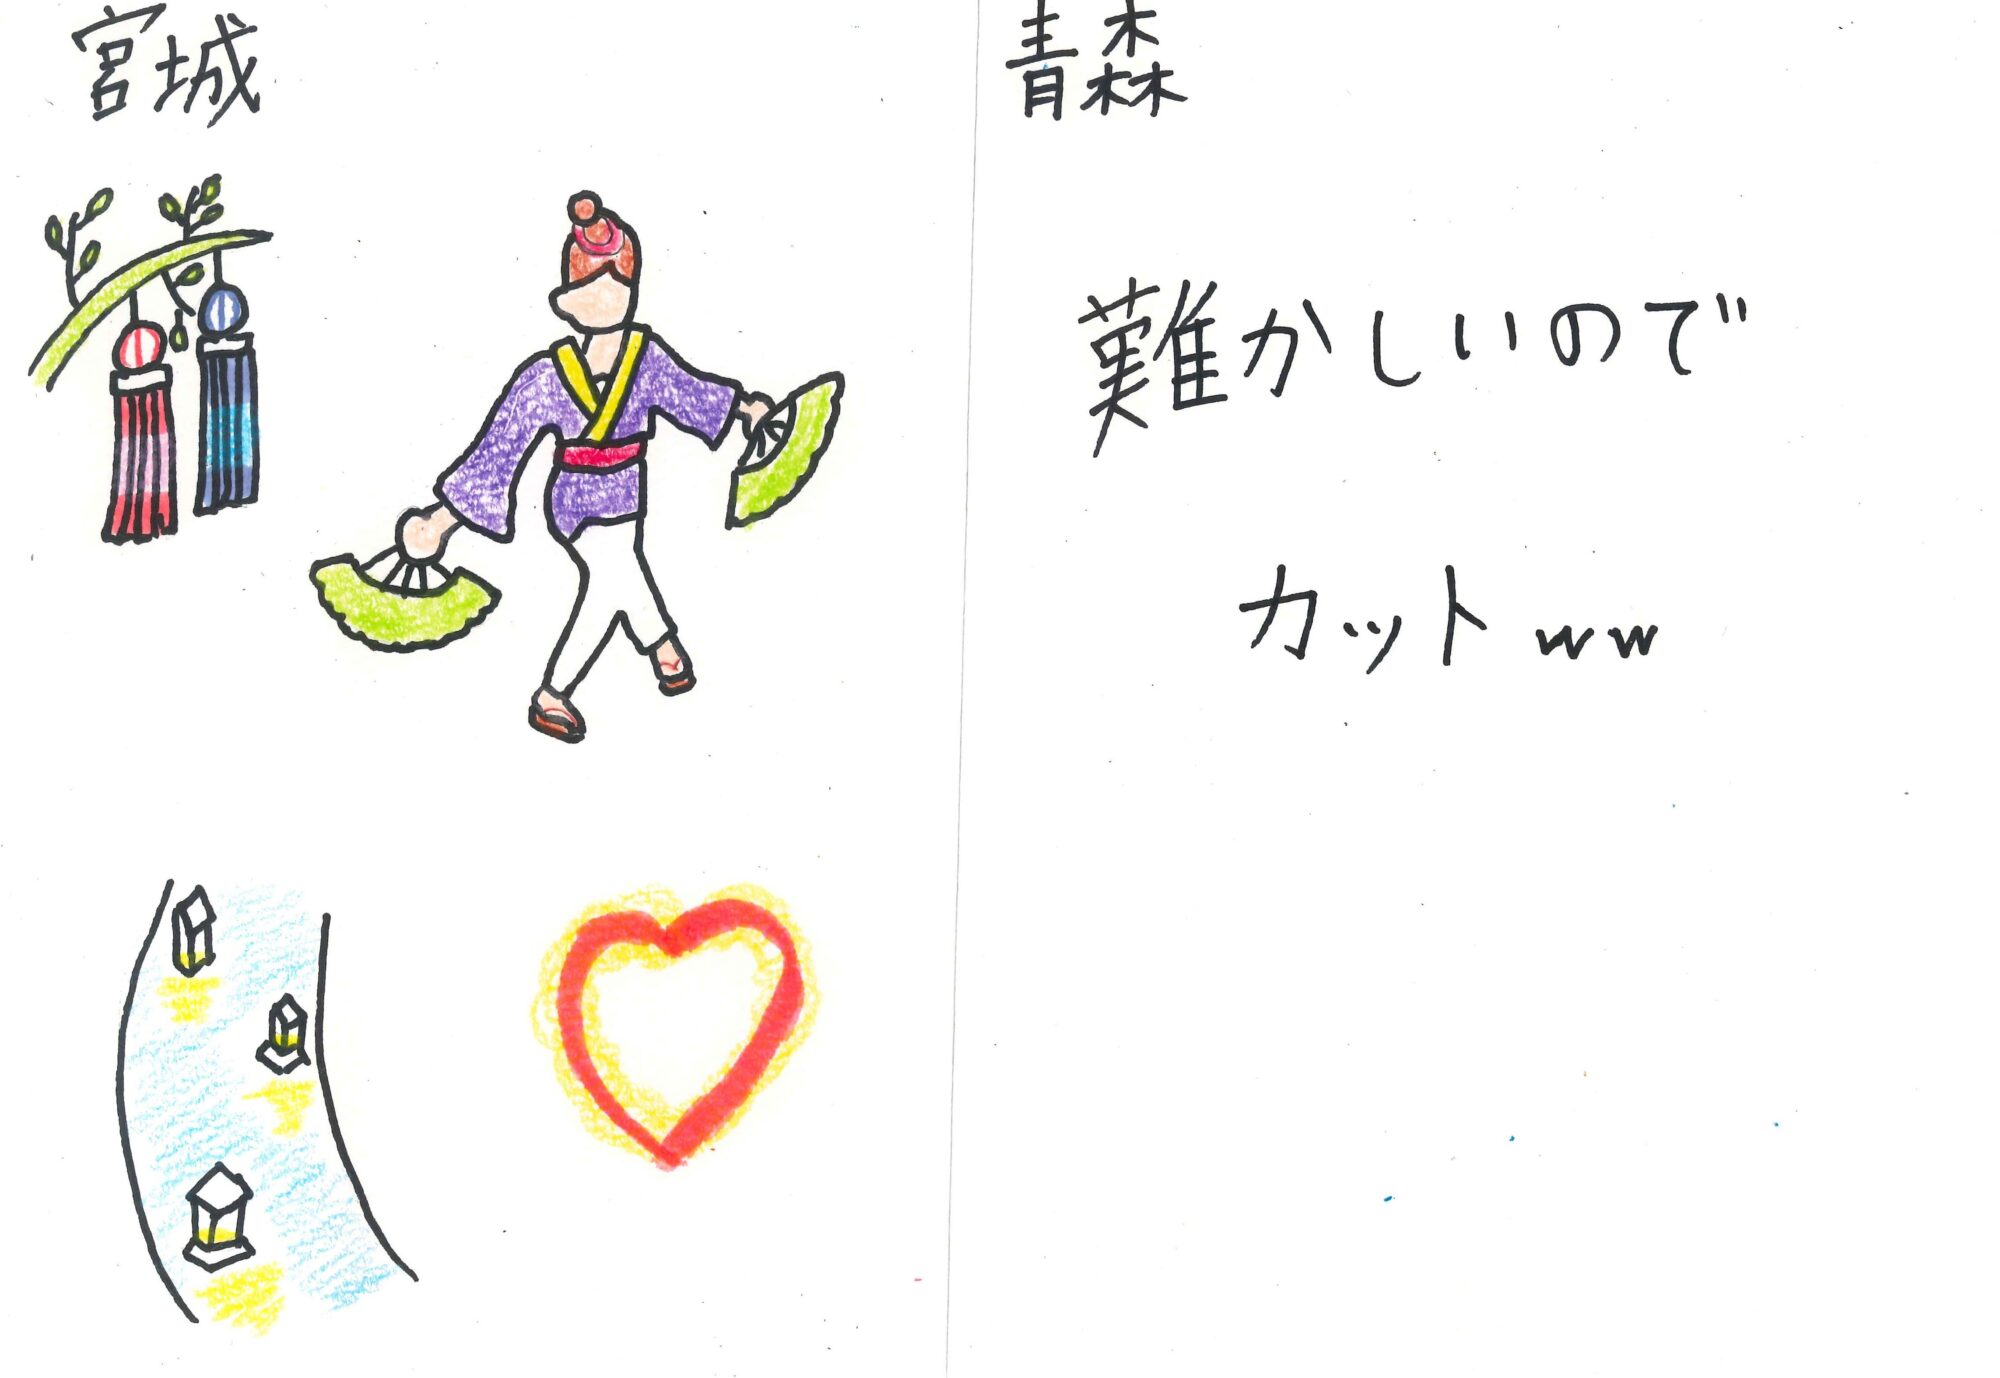 宮城
青森
難かしいので
カットww